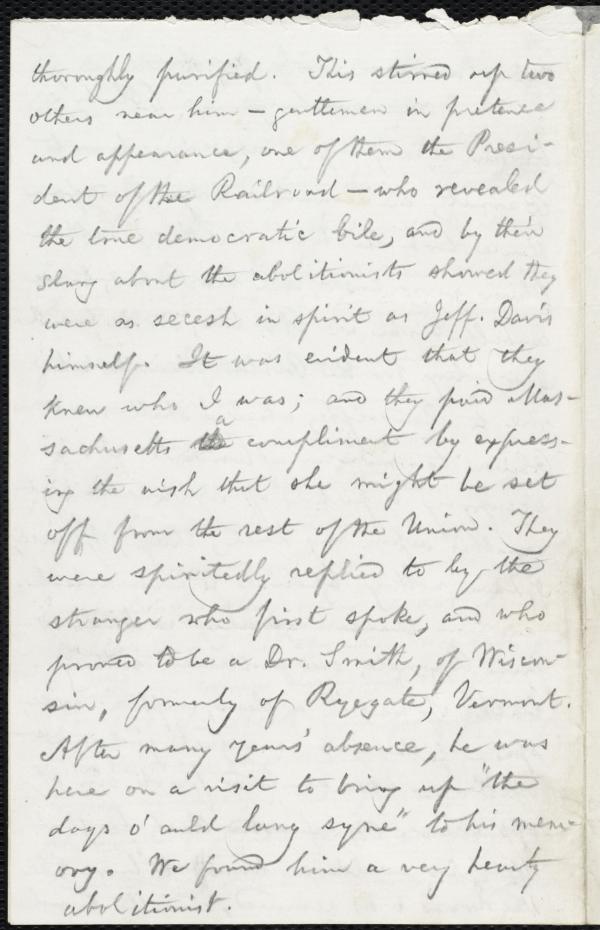 thoroughly purified. This stirred up two
others near him — gentlemen in pretence
and appearance, one of them the Presi-
dent of the Railroad — who revealed
the true democratic bile, and by their
slang about the abolitionists showed they
were as secesh in spirit as Jeff. Davis
himself. It was evident that they
knew who I was; and they paid Mas-
sachusetts the a compliment by express-
ing the wish that she might be set
off from the rest of the Union. They
were spiritedly replied to by the
stranger who first spoke, and who
proved to be a Dr. Smith, of Wiscon-
sin, formerly of Ryegate, Vermont.
After many years' absence, he was
here on a visit to bring up "the
days o' auld lang syne" to his mem-
ory. We found him a very hearty
abolitionist.